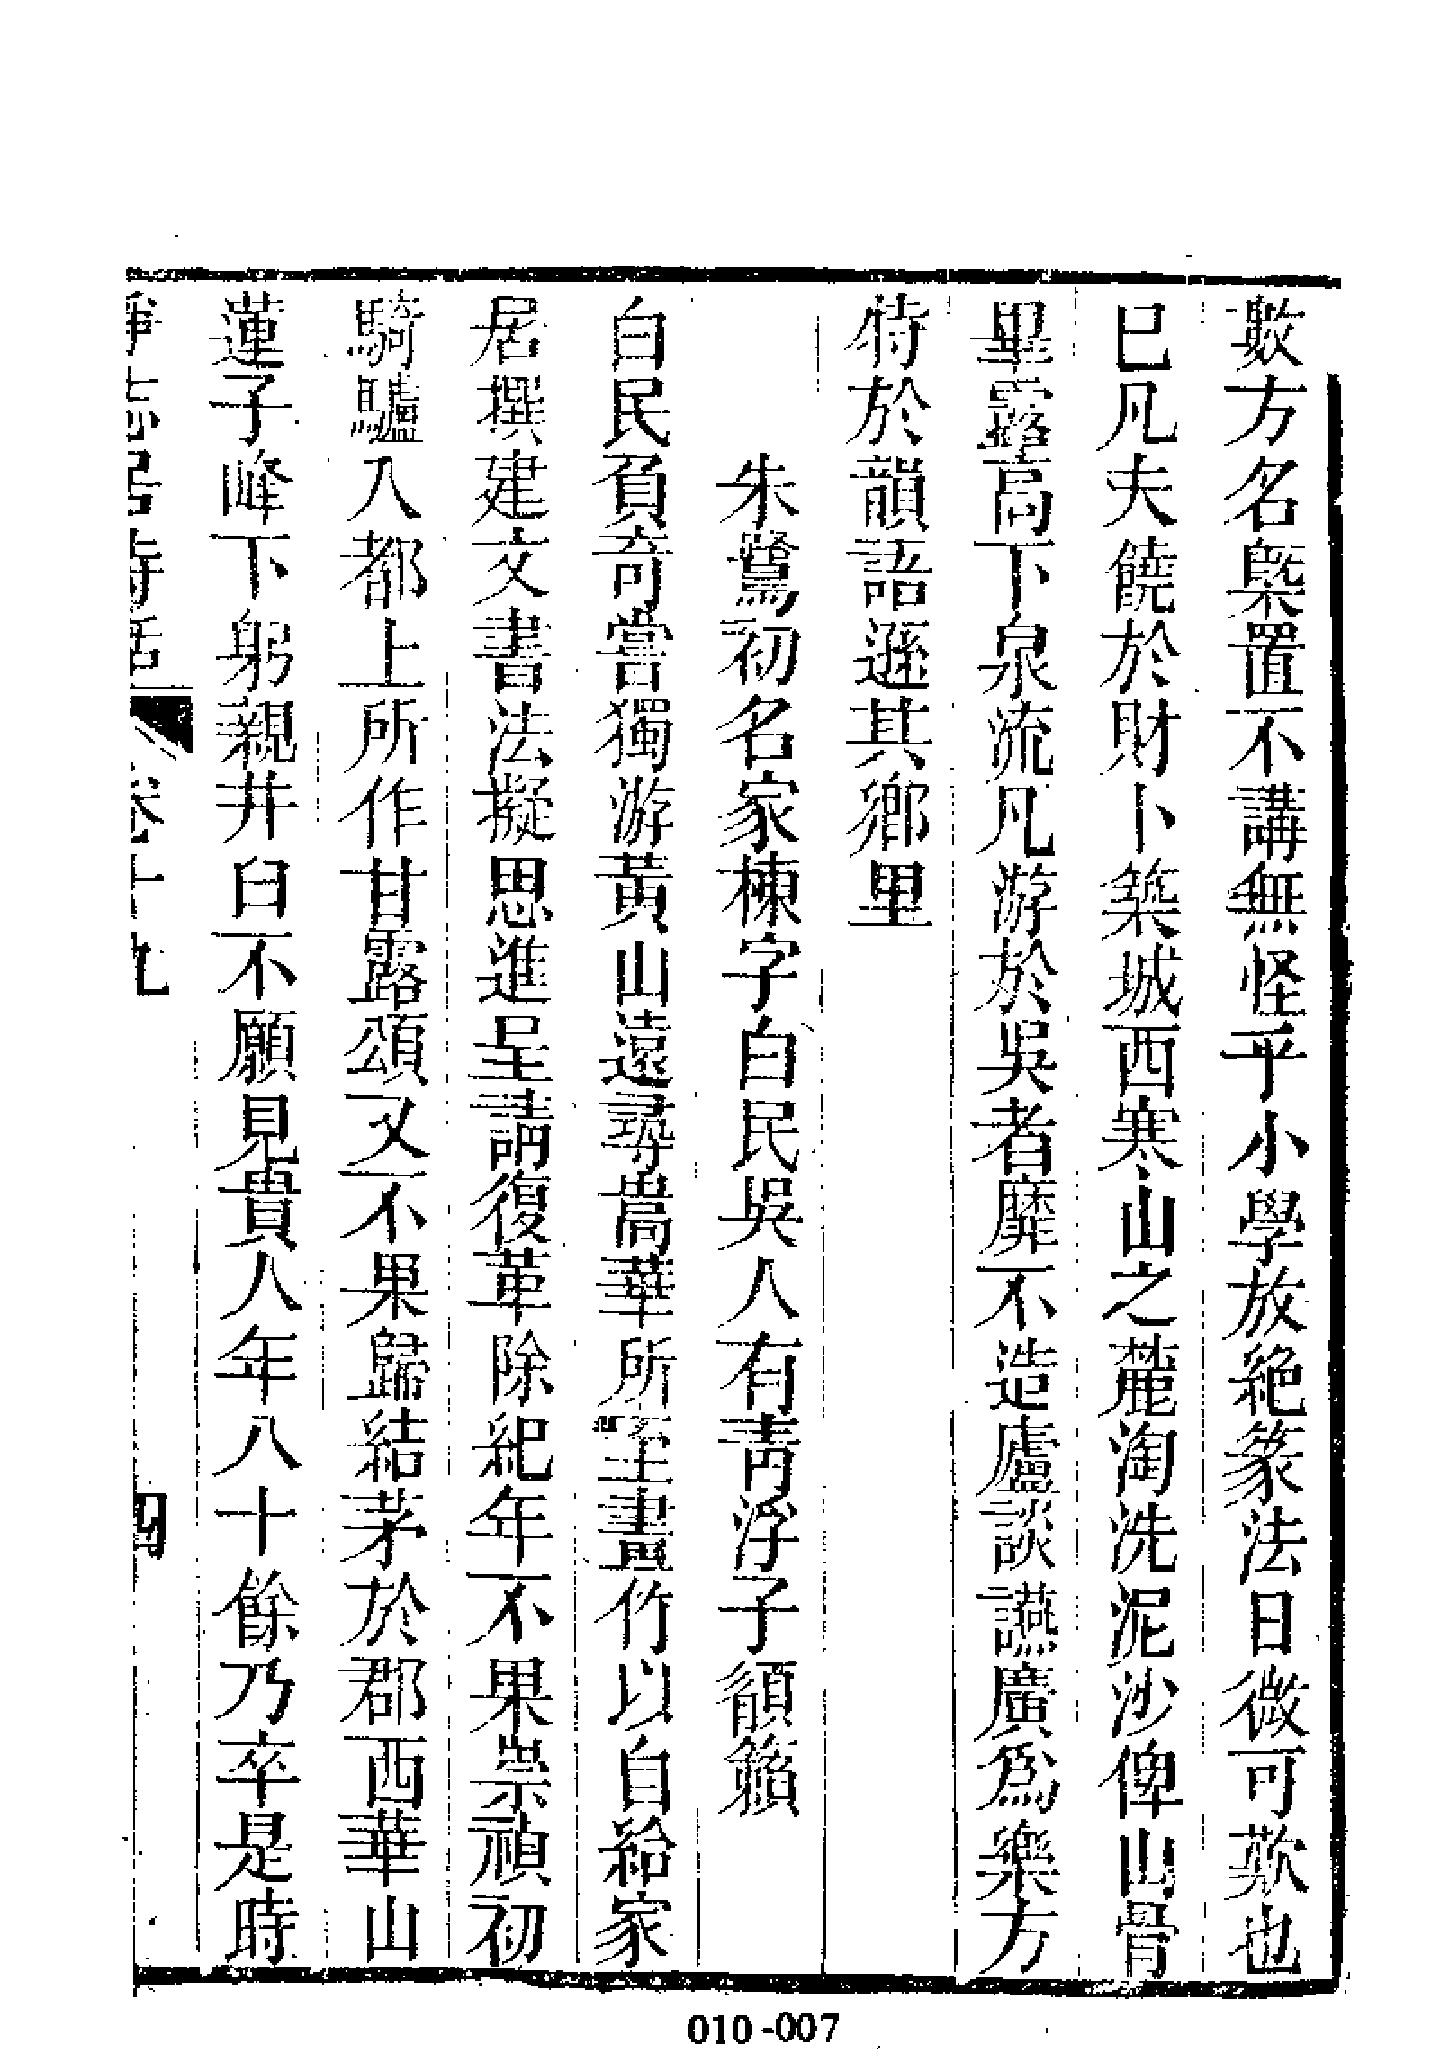 數方名槩置不講無怪乎小學放絶篆法日微可歎也
已凡夫饒於財卜築城西寒山之麓淘洗泥沙俾山骨
畢露高下泉流凡游於吳者靡不造廬談讌廣爲樂方
特於韻語遜其鄉里
朱鷺初名家棟字白民吳人有青浮子頟籟
白民負奇嘗獨游黃山遠尋嵩華所至畫竹以自給家
居撰建文書法擬思進呈請復革除紀年不果崇禎初
騎驢入都上所作甘露頌又不果歸結茅於郡西華山
蓮子峰下躬親井臼不願見貴人年八十餘乃卒是時
靜志居詩話
卷十九
四
010-007